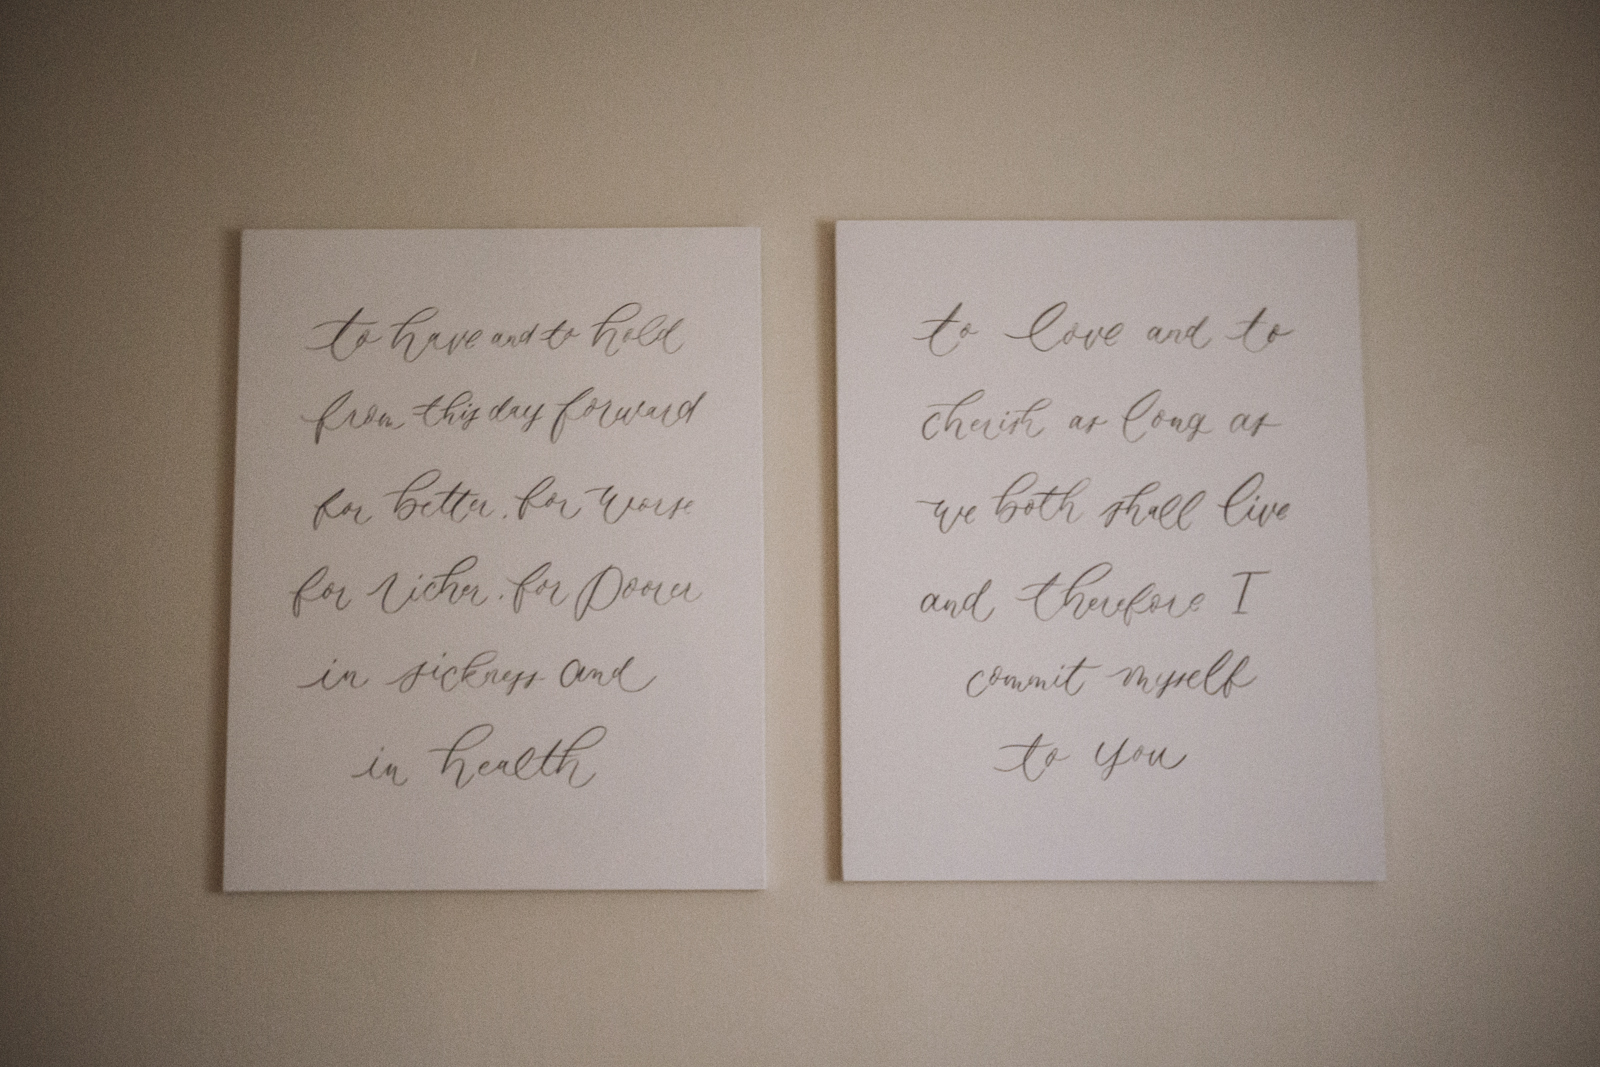 to have and to hold
from this day forward
for better, for worse
for richer, for poorer
in sickness and
in health
to love and to
cherish as long as
we both shall live
and therefore I
commit myself
to you